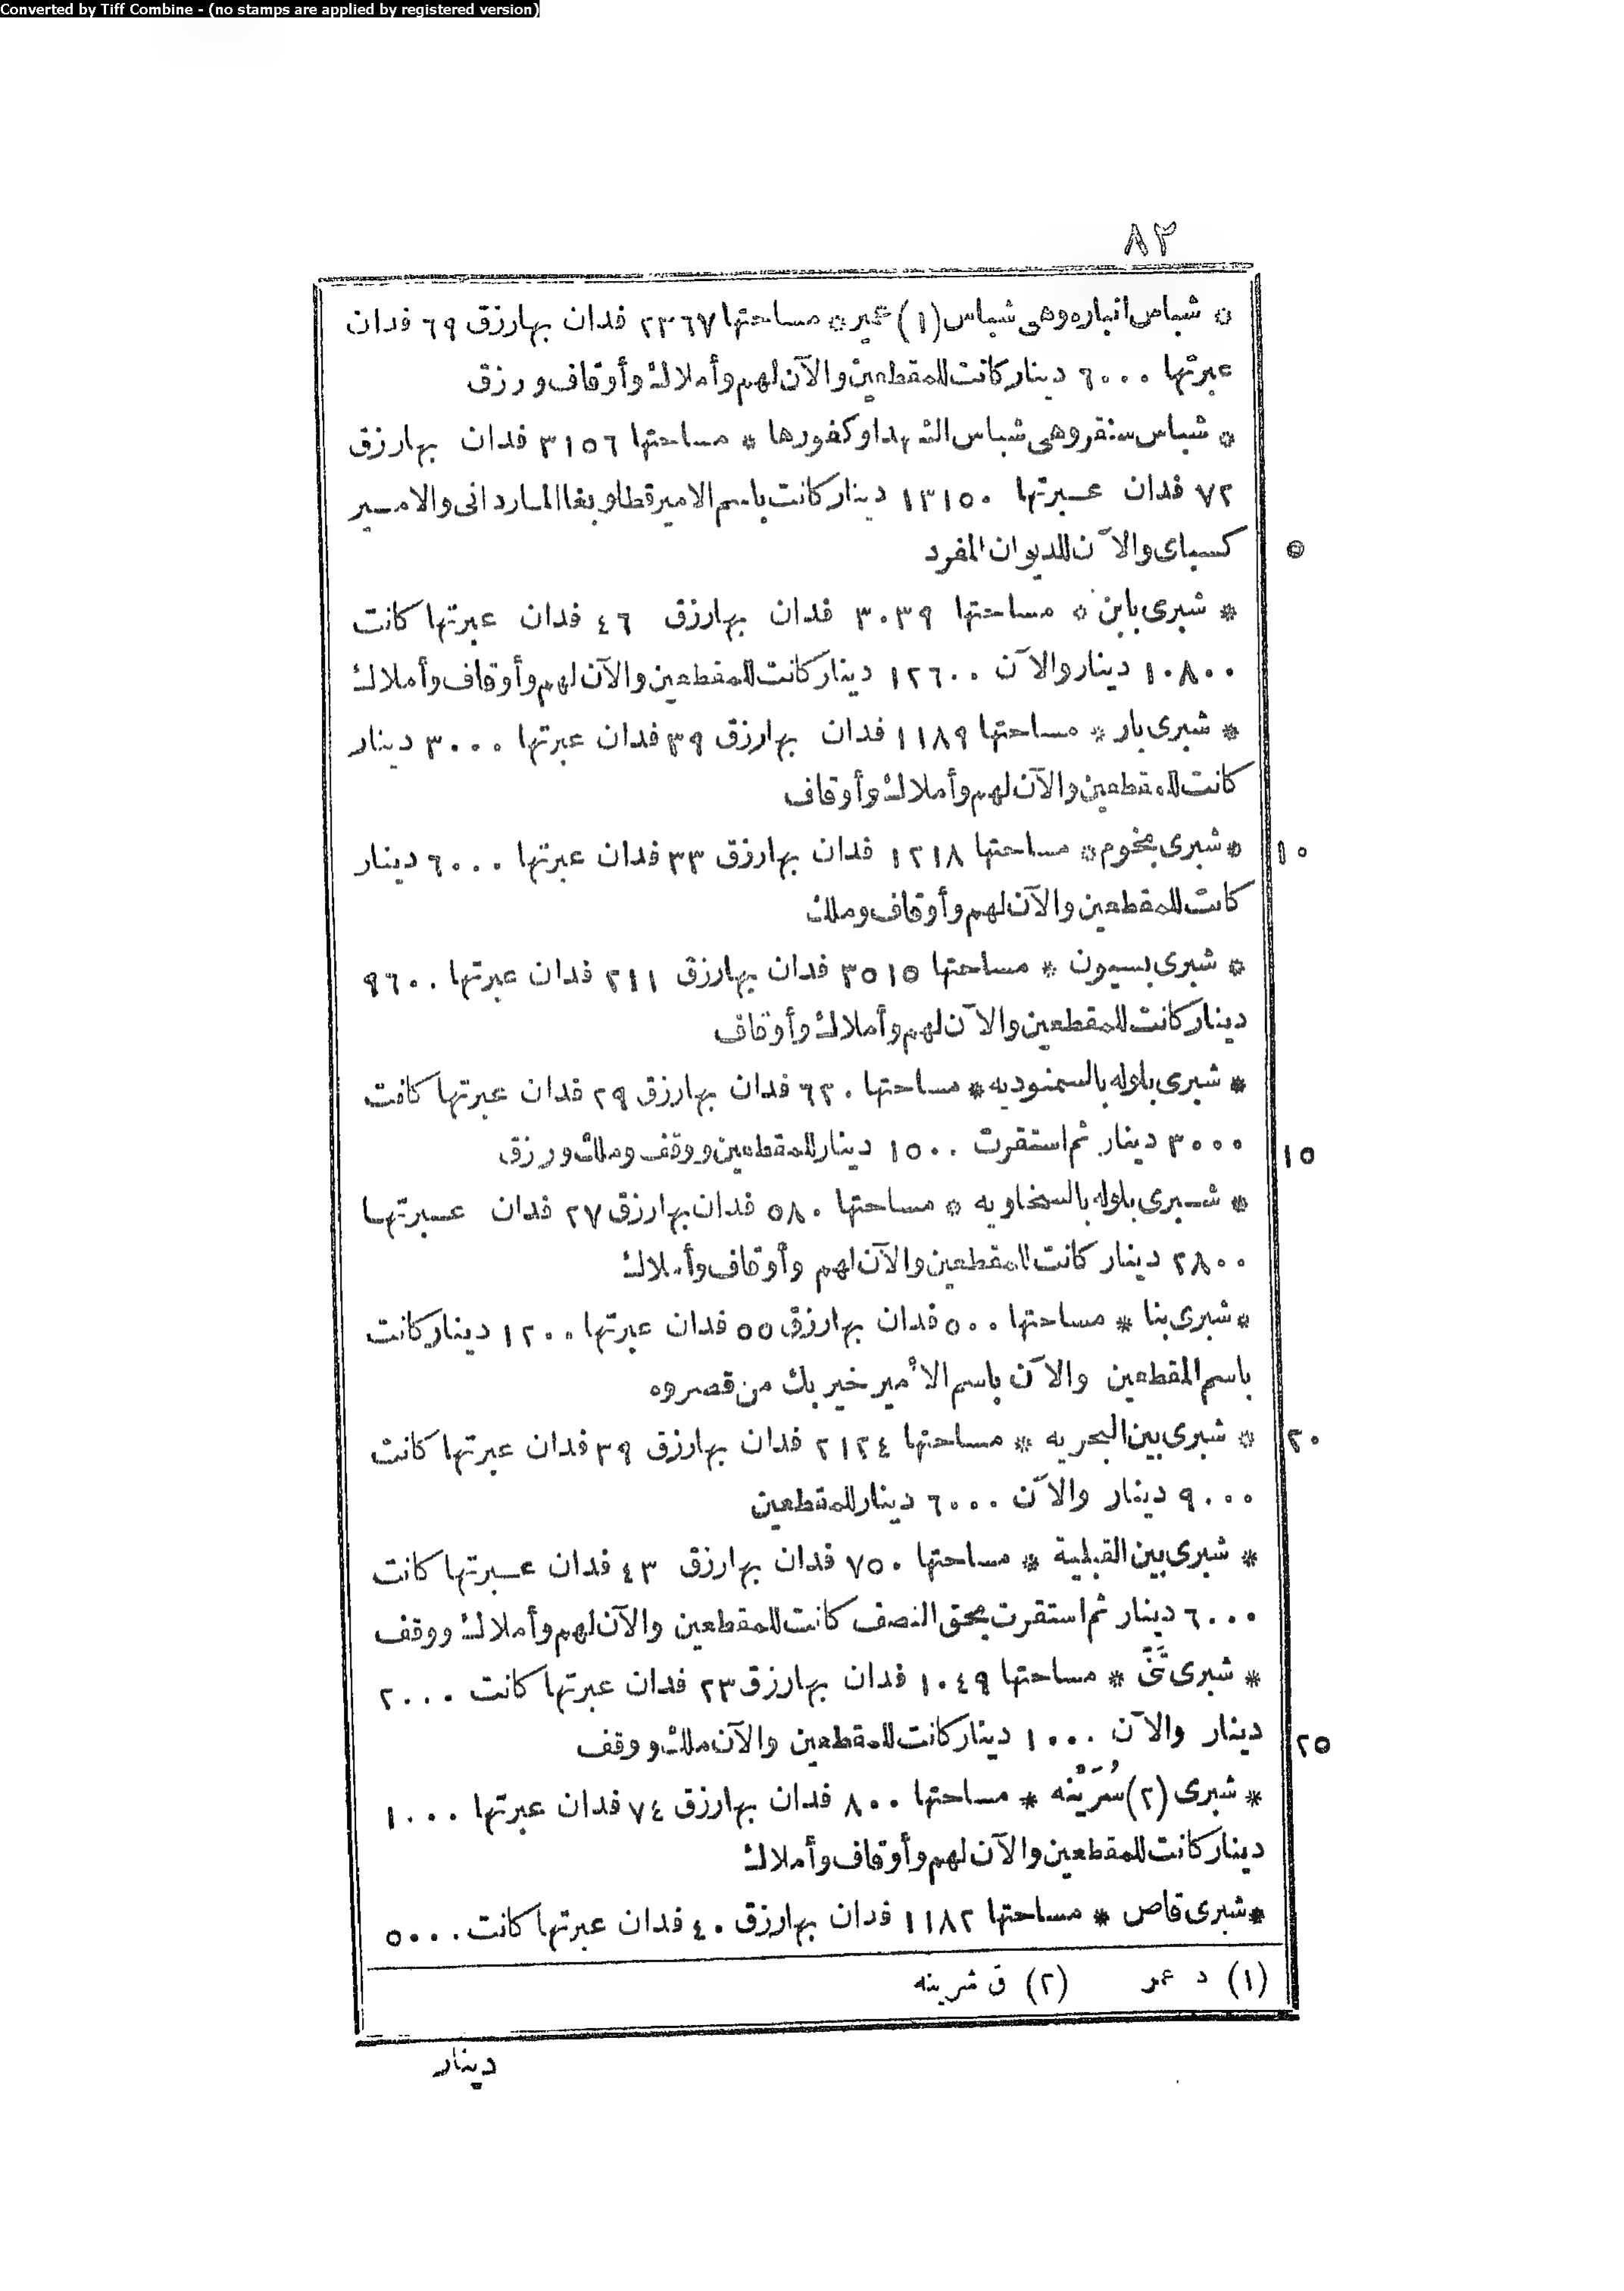 Converted by Tiff Combine - (no stamps are applied by registered version)
٨٢
* شباس انباره وهى شباس (١) عمير * مساحتها ٢٣٦٧ فدان بها رزق ٦٩ فدان
عبرتها ٦٠٠٠ دينار كانت للمقطعين والآن لهم وأملاك وأوقاف ورزق
* شباس سنقر وهى شباس الشهدا وكفورها * مساحتها ٣١٥٦ فدان بها رزق
٧٢ فدان عبرتها ١٣١٥٠ دينار كانت باسم الامير قطلوبغا الماردانى والامير
كسباى والآن للديوان المفرد
٥
* شبرى بابن * مساحتها ٣٠٣٩ فدان بها رزق ٤٦ فدان عبرتها كانت
١٠٨٠٠ دينار والآن ١٢٦٠٠ دينار كانت للمقطعين والآن لهم وأوقاف وأملاك
* شبرى بار * مساحتها ١١٨٩ فدان بها رزق ٣٩ فدان عبرتها ٣٠٠٠ دينار
كانت للمقطعين والآن لهم وأملاك وأوقاف
* شبرى بخوم * مساحتها ١٢١٨ فدان بها رزق ٣٣ فدان عبرتها ٦٠٠٠ دينار
١٠
كانت للمقطعين والآن لهم وأوقاف وملك
* شبرى بسيون * مساحتها ٣٥١٥ فدان بها رزق ٢١١ فدان عبرتها ٩٦٠٠
دينار كانت للمقطعين والآن لهم وأملاك وأوقاف
* شبرى بلوله بالسمنوديه * مساحتها ٦٢٠ فدان بها رزق ٢٩ فدان عبرتها كانت
٣٠٠٠ دينار ثم استقرت ١٥٠٠ دينار للمقطعين ووقف وملك ورزق
١٥
* شبرى بلوله بالسخاويه * مساحتها ٥٨٠ فدان بها رزق ٢٧ فدان عبرتها
٢٨٠٠ دينار كانت للمقطعين والآن لهم وأوقاف وأملاك
* شبرى بنا * مساحتها ٥٠٠ فدان بها رزق ٥٥ فدان عبرتها ١٢٠٠ دينار كانت
باسم المقطعين والآن باسم الأمير خير بك من قصروه
* شبرى بين البحريه * مساحتها ٢١٢٤ فدان بها رزق ٣٩ فدان عبرتها كانت
٢٠
٩٠٠٠ دينار والآن ٦٠٠٠ دينار للمقطعين
* شبرى بين القبلية * مساحتها ٧٥٠ فدان بها رزق ٤٣ فدان عبرتها كانت
٦٠٠٠ دينار ثم استقرت بحق النصف كانت للمقطعين والآن لهم وأملاك ووقف
* شبرى * مساحتها ١٠٤٩ فدان بها رزق ٢٣ فدان عبرتها كانت ٢٠٠٠
دينار والآن ١٠٠٠ دينار كانت للمقطعين والآن ملك ووقف
٢٥
* شبرى (٢) سُرَيْنُه * مساحتها ٨٠٠ فدان بها رزق ٧٤ فدان عبرتها ١٠٠٠
دينار كانت للمقطعين والآن لهم وأوقاف وأملاك
* شبرى قاص * مساحتها ١١٨٢ فدان بها رزق ٤٠ فدان عبرتها كانت ٥٠٠٠
(١) د عمر (٢) ق شرينه
دينار